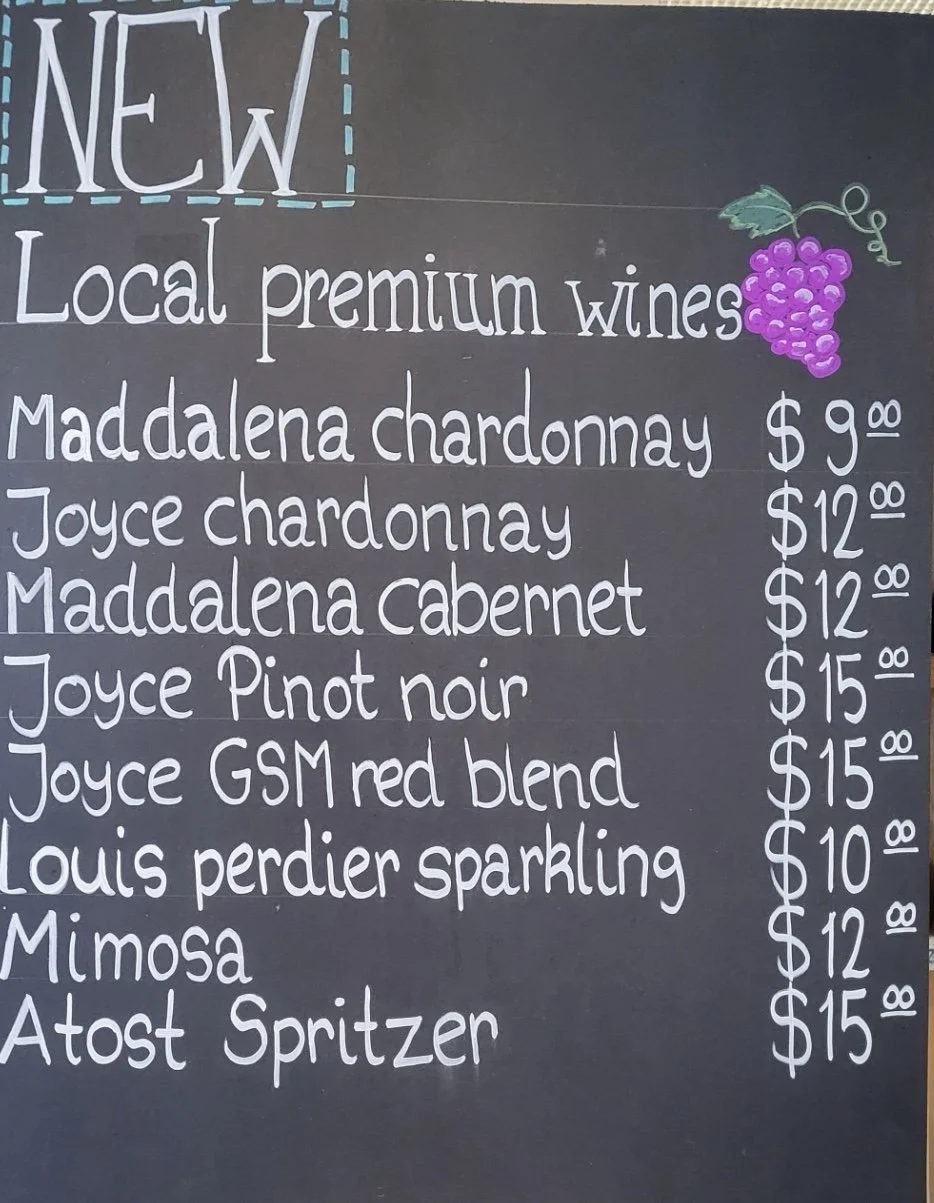 NEW
Local premium wines
Maddalena chardonnay $ 9 00
Joyce chardonnay $12 00
Maddalena cabernet $12 00
Joyce Pinot noir $15 00
Joyce GSM red blend $15 00
Louis perdier sparkling $10 00
Mimosa $12 00
Atost Spritzer $15 00